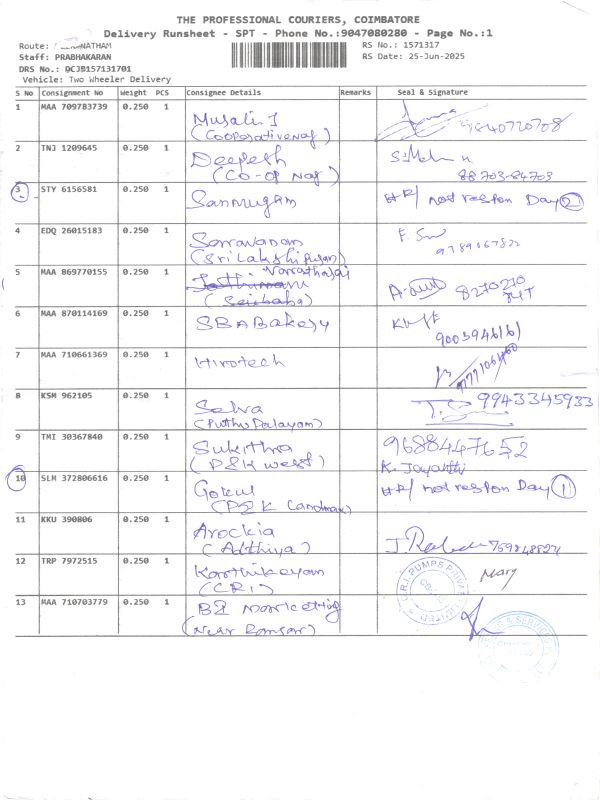 THE PROFESSIONAL COURIERS, COIMBATORE
Delivery Runsheet - SPT - Phone No.:9047080280 - Page No.:1
Route: NATHAM
RS No.: 1571317
Staff: PRABHAKARAN
RS Date: 25-Jun-2025
DRS No.: DCJB157131701
Vehicle: Two Wheeler Delivery
S No Consignment No Weight PCS Consignee Details Remarks Seal & Signature
1 MAA 709783739 0.250 1 Murali J
(Cooperative Naj) 9840720708
2 TNJ 1209645 0.250 1 Deepesh
(Co-op Naj) 88703-84703
3 STY 6156581 0.250 1 Sanmugam not respon Day 2
4 EDQ 26015183 0.250 1 Saravanan
(Sri Lakshi puram)
5 MAA 869770155 0.250 1 Varratharaj
(Saibaba) 8270270
6 MAA 870114169 0.250 1 SBA Bakery
9003946161
7 MAA 710661369 0.250 1 Hirotech
8 KSM 962105 0.250 1 Selva 9943345933
(Puthu Palayam)
9 TMI 30367840 0.250 1 Sukitha 9688447652
(P&K west) K. Jayanthi
10 SLM 372806616 0.250 1 Gokul not respon Day 1
(P&K Landmark)
11 KKU 390806 0.250 1 Arockia
(Adthiya)
12 TRP 7972515 0.250 1 Karthikeyan Mary
(CRI)
C.R.I. PUMPS PRIVATE LIMITED
13 MAA 710703779 0.250 1 BE Marketing
(Near Bansari)
& SERVICES